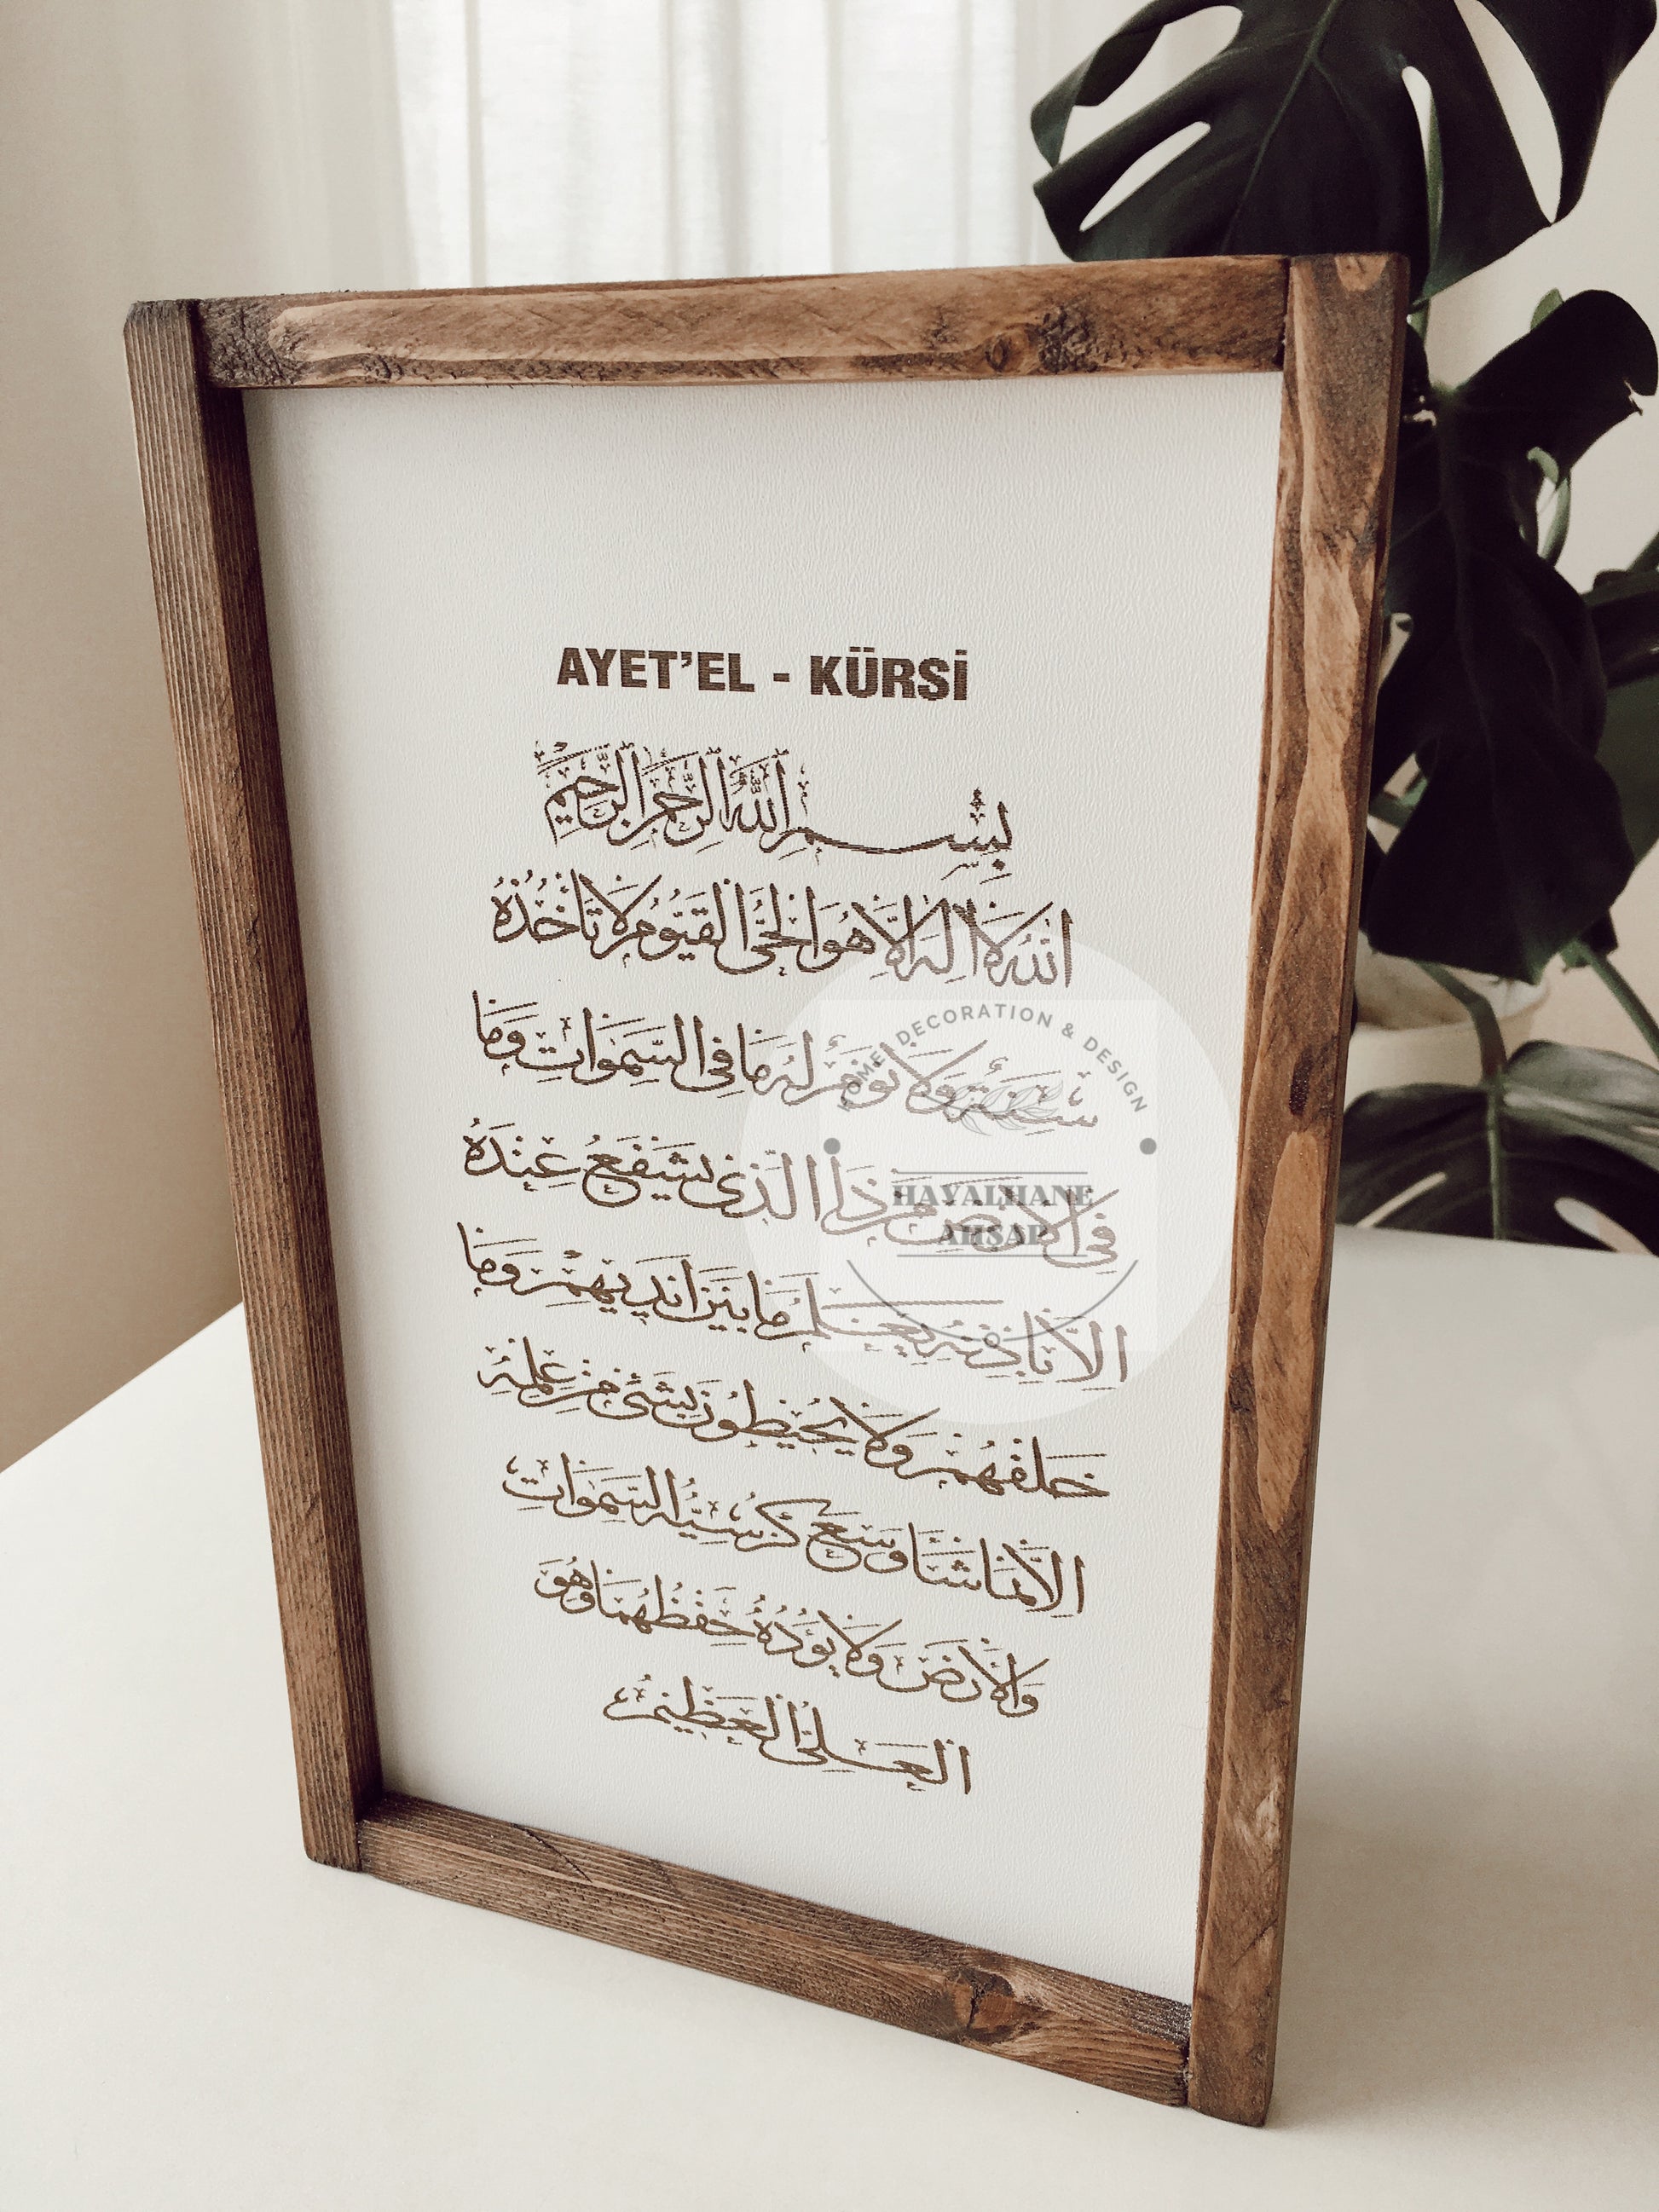 AYET'EL - KÜRSİ
بِسْمِ اللّٰهِ الرَّحْمٰنِ الرَّحِيمِ
اَللّٰهُ لَا اِلٰهَ اِلَّا هُوَ الْحَىُّ الْقَيُّومُ لَا تَاْخُذُهُ
سِنَةٌ وَلَا نَوْمٌ لَهُ مَا فِى السَّمٰوَاتِ وَمَا
فِى الْاَرْضِ مَنْ ذَا الَّذِى يَشْفَعُ عِنْدَهُ
اِلَّا بِاِذْنِهِ يَعْلَمُ مَا بَيْنَ اَيْدِيهِمْ وَمَا
خَلْفَهُمْ وَلَا يُحِيطُونَ بِشَىْءٍ مِنْ عِلْمِهِ
اِلَّا بِمَا شَاءَ وَسِعَ كُرْسِيُّهُ السَّمٰوَاتِ
وَالْاَرْضَ وَلَا يَؤُدُهُ حِفْظُهُمَا وَهُوَ
الْعَلِىُّ الْعَظِيمُ
HOME DECORATION & DESIGN
HAYALHANE
AHŞAP